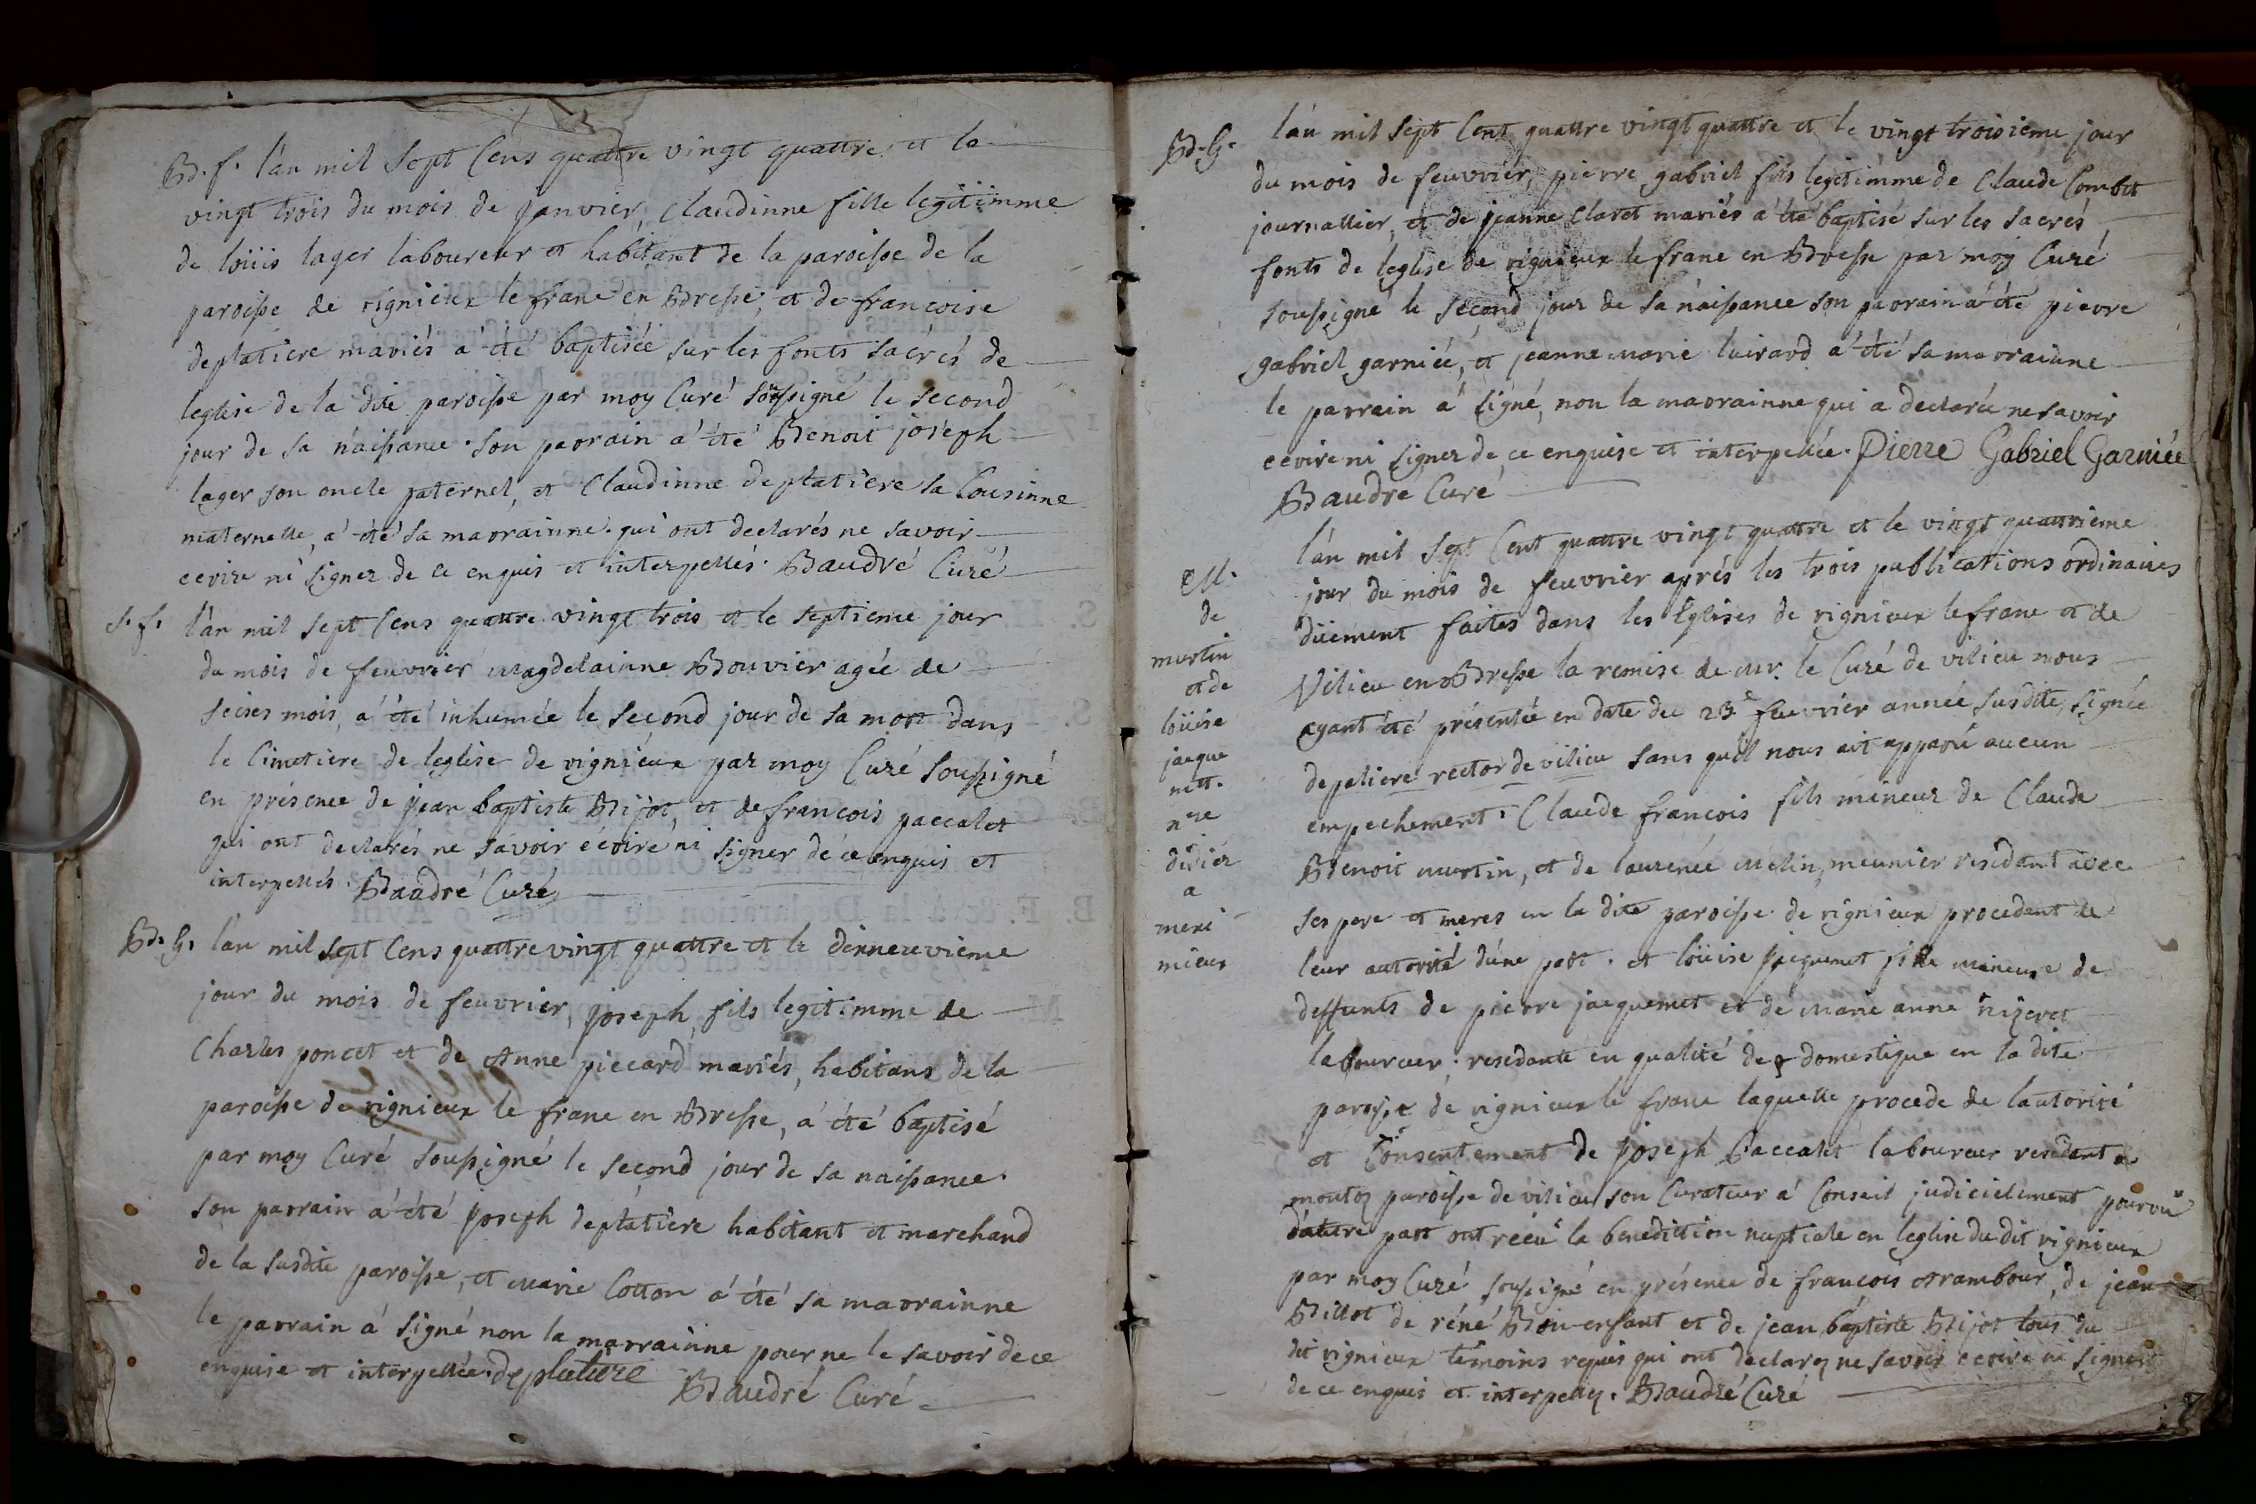 B. f. l'án mil sept Cens quattre vingt quattre et le
vingt trois du mois de janvier, Claudinne fille legitimme
de loüis lager laboureur et habitant de la paroisse de la
paroisse de rignieux le franc en Bresse, et de francoise
deplatiere mariés a été baptisée sur les fonts sacrés de
leglise de la dite paroisse par moy Curé soussigné le second
jour de sa naissance. son parrain a été Benoit joseph
lager son oncle paternel, et Claudinne deplatiere sa Cousinne
maternelle, a été sa marrainne. qui ont declarés ne savoir
ecrire ni signer de ce enquis et interpellés. Baudré Curé
S. f. l'án mil sept Cens quattre vingt trois et le septieme jour
du mois de feuvrier Magdelainne Bouvier agée de
seises mois, a été inhumée le second jour de sa mort dans
le Cimetiere de leglise de rignieux par moy Curé soussigné
en présence de jean baptiste Bijot, et de francois paccalet
qui ont declarés ne savoir écrire ni signer de ce enquis et
interpellés. Baudré Curé
B. G. l'án mil sept Cens quattre vingt quattre et le dinneuvieme
jour du mois de feuvrier, joseph, fils legitimme de
Charles poncet et de Anne piccard mariés, habitans de la
paroisse de rignieux le franc en Bresse, a été baptisé
par moy Curé soussigné le second jour de sa naissance.
son parrain a été joseph deplatiere habitant et marchand
de la susdite paroisse, et Marie Cotton a été sa marrainne
le parrain a signé non la marrainne pour ne le savoir de ce
enquise et interpellée. deplatiere Baudré Curé
B. G. l'án mil sept Cent quattre vingt quattre et le vingt troisieme jour
du mois de feuvrier, pierre gabriel fils legitimme de Claude Combet
journallier, et de jeanne Claret mariés a été baptisé sur les sacrés
fonts de leglise de rignieux le franc en Bresse par moy Curé
soussigné le second jour de sa naissance son parrain a été pierre
gabriel garniée, et jeanne Marie luirard a été sa marrainne
le parrain a signé, non la marrainne qui a declarée ne savoir
ecrire ni signer de ce enquise et interpellée. Pierre Gabriel Garniée
Baudré Curé
M.
de
martin
et de
loüise
jacque
mett.
nre
divier
a
mexi
mieux
l'án mil sept Cent quattre vingt quattre et le vingt quattrieme
jour du mois de feuvrier aprés les trois publications ordinaires
düement faites dans les Eglises de rignieux le franc et de
Vilieu en Bresse la remise de Mr. le Curé de vilieu nous
ayant été présentée en date du 23e feuvrier année susdite, signée
depaliere rector de vilieu sans quil nous ait apparû aucun
empechement. Claude francois fils mineur de Claude
Benoit martin, et de laurence Melin, meunier residant avec
ses pere et meres en la dite paroisse de rignieux procedant de
leur autorité d'une part. et loüise jacquemet fille mineure de
deffunts de pierre jacquemet et de Marie anne nizeret
laboureur; residante en qualité de domestique en la dite
paroisse de rignieux le franc laquelle procede de lautorité
et Consentement de joseph Paccalet laboureur residant a
montoz paroisse de vilieu son Curateur a Conseil judiciellement pourvû
d'autre part ont recû la benediction nuptiale en leglise du dit rignieux
par moy Curé soussigné en présence de francois Arambour, de jean
Billot de réné Bon-enfant et de jean baptiste Bijot tous du
dit rignieux temoins requis qui ont declarez ne savoir ecrire ni signer
de ce enquis et interpellez. Baudré Curé